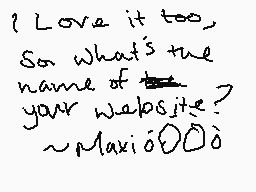 I Love it too,
So what's the
name of
your website?
~Maxi òOOò